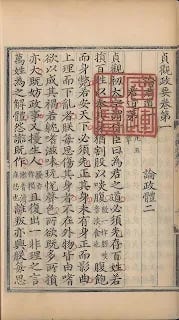 貞觀政要卷第
論君道一
論政體二
貞觀初太宗謂侍臣曰為君之道必須先存百姓若
損百姓以奉其身猶割股以啖腹腹飽
而身斃若安天下必須先正其身未有身正而影曲
上理而下亂者朕每思傷其身者不在外物皆由嗜
欲以成其禍若耽嗜滋味玩悅聲色所欲既多所損
亦大既妨政事又擾生人且復出一非理之言
萬姓為之解體怨讟既作離叛亦興朕每思